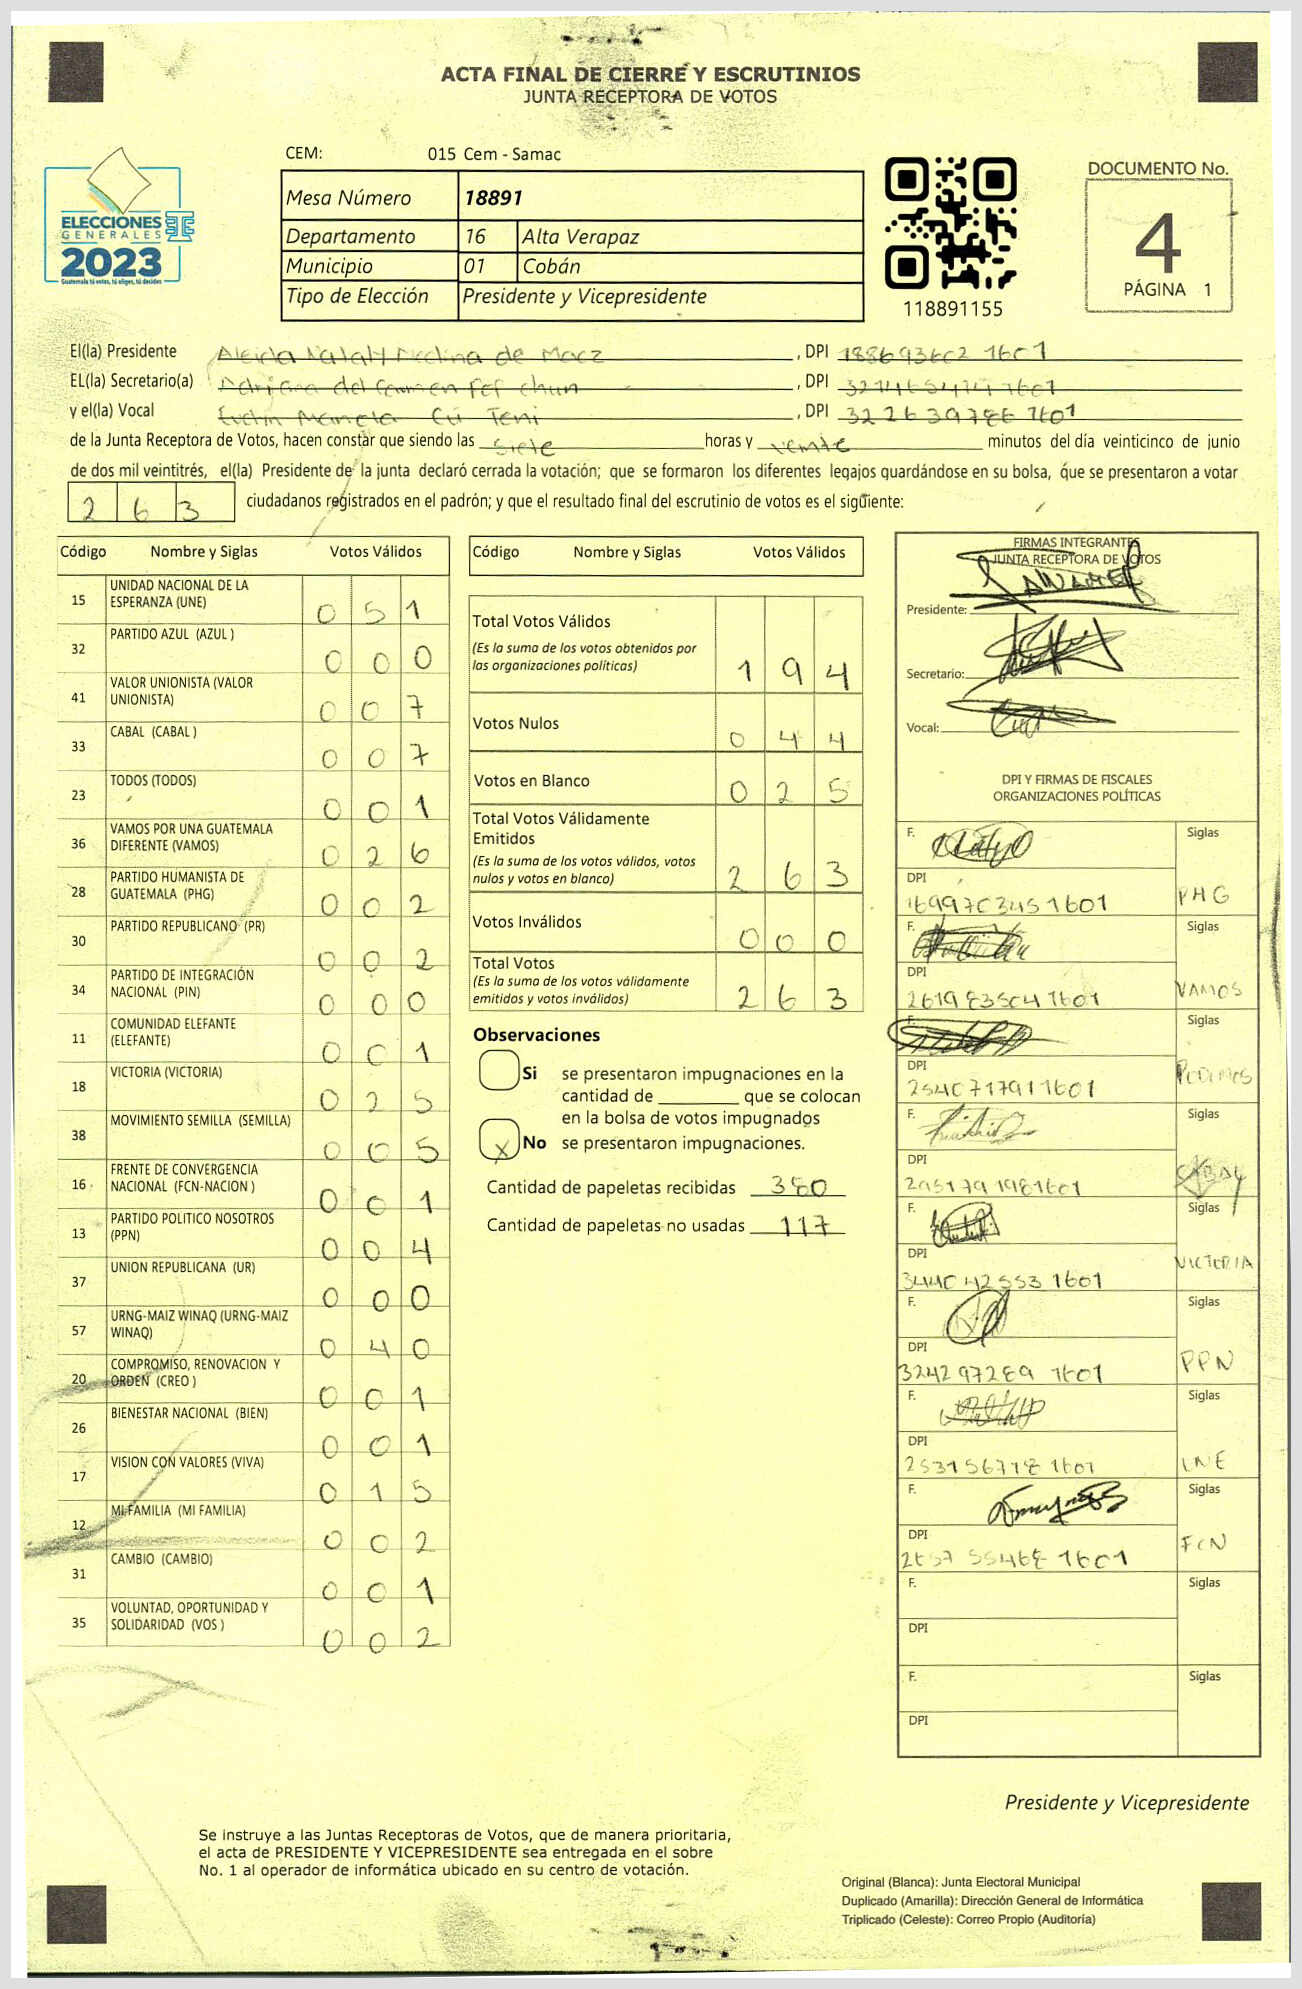 ACTA FINAL DE CIERRE Y ESCRUTINIOS
JUNTA RECEPTORA DE VOTOS
CEM: 015 Cem - Samac
Mesa Número 18891
Departamento 16 Alta Verapaz
Municipio 01 Cobán
Tipo de Elección Presidente y Vicepresidente
ELECCIONES
GENERALES
2023
Guatemala tú votas, tú eliges, tú decides
118891155
DOCUMENTO No.
4
PÁGINA 1
El(la) Presidente Aleida Nataly Medina de Macz , DPI 188693602 1601
EL(la) Secretario(a) Adriana del Carmen , DPI
y el(la) Vocal Cú Teni , DPI 322639786 1601
de la Junta Receptora de Votos, hacen constar que siendo las siete horas y veinte minutos del día veinticinco de junio
de dos mil veintitrés, el(la) Presidente de la junta declaró cerrada la votación; que se formaron los diferentes legajos guardándose en su bolsa, que se presentaron a votar
263 ciudadanos registrados en el padrón; y que el resultado final del escrutinio de votos es el siguiente:
Código Nombre y Siglas Votos Válidos
15 UNIDAD NACIONAL DE LA ESPERANZA (UNE) 051
32 PARTIDO AZUL (AZUL ) 000
41 VALOR UNIONISTA (VALOR UNIONISTA) 007
33 CABAL (CABAL ) 007
23 TODOS (TODOS) 001
36 VAMOS POR UNA GUATEMALA DIFERENTE (VAMOS) 026
28 PARTIDO HUMANISTA DE GUATEMALA (PHG) 002
30 PARTIDO REPUBLICANO (PR) 002
34 PARTIDO DE INTEGRACIÓN NACIONAL (PIN) 000
11 COMUNIDAD ELEFANTE (ELEFANTE) 001
18 VICTORIA (VICTORIA) 025
38 MOVIMIENTO SEMILLA (SEMILLA) 005
16 FRENTE DE CONVERGENCIA NACIONAL (FCN-NACION ) 001
13 PARTIDO POLITICO NOSOTROS (PPN) 004
37 UNION REPUBLICANA (UR) 000
57 URNG-MAIZ WINAQ (URNG-MAIZ WINAQ) 040
20 COMPROMISO, RENOVACION Y ORDEN (CREO ) 001
26 BIENESTAR NACIONAL (BIEN) 001
17 VISION CON VALORES (VIVA) 015
12 MI FAMILIA (MI FAMILIA) 002
31 CAMBIO (CAMBIO) 001
35 VOLUNTAD, OPORTUNIDAD Y SOLIDARIDAD (VOS ) 002
Código Nombre y Siglas Votos Válidos
Total Votos Válidos 194
(Es la suma de los votos obtenidos por
las organizaciones políticas)
Votos Nulos 044
Votos en Blanco 025
Total Votos Válidamente
Emitidos 263
(Es la suma de los votos válidos, votos
nulos y votos en blanco)
Votos Inválidos 000
Total Votos 263
(Es la suma de los votos válidamente
emitidos y votos inválidos)
Observaciones
Si se presentaron impugnaciones en la
cantidad de ________ que se colocan
en la bolsa de votos impugnados
X No se presentaron impugnaciones.
Cantidad de papeletas recibidas 380
Cantidad de papeletas no usadas 117
FIRMAS INTEGRANTES
JUNTA RECEPTORA DE VOTOS
Presidente:
Secretario:
Vocal:
DPI Y FIRMAS DE FISCALES
ORGANIZACIONES POLÍTICAS
F. Siglas
DPI PHG
169970345 1601
F. Siglas
DPI VAMOS
261983504 1601
F. Siglas
DPI PODEMOS
254071791 1601
F. Siglas
DPI CABAL
295179198 1601
F. Siglas
DPI VICTORIA
344042553 1601
F. Siglas
DPI PPN
324297289 1601
F. Siglas
DPI UNE
253156718 1601
F. Siglas
DPI FCN
265755468 1601
F. Siglas
DPI
F. Siglas
DPI
Presidente y Vicepresidente
Se instruye a las Juntas Receptoras de Votos, que de manera prioritaria,
el acta de PRESIDENTE Y VICEPRESIDENTE sea entregada en el sobre
No. 1 al operador de informática ubicado en su centro de votación.
Original (Blanca): Junta Electoral Municipal
Duplicado (Amarilla): Dirección General de Informática
Triplicado (Celeste): Correo Propio (Auditoría)